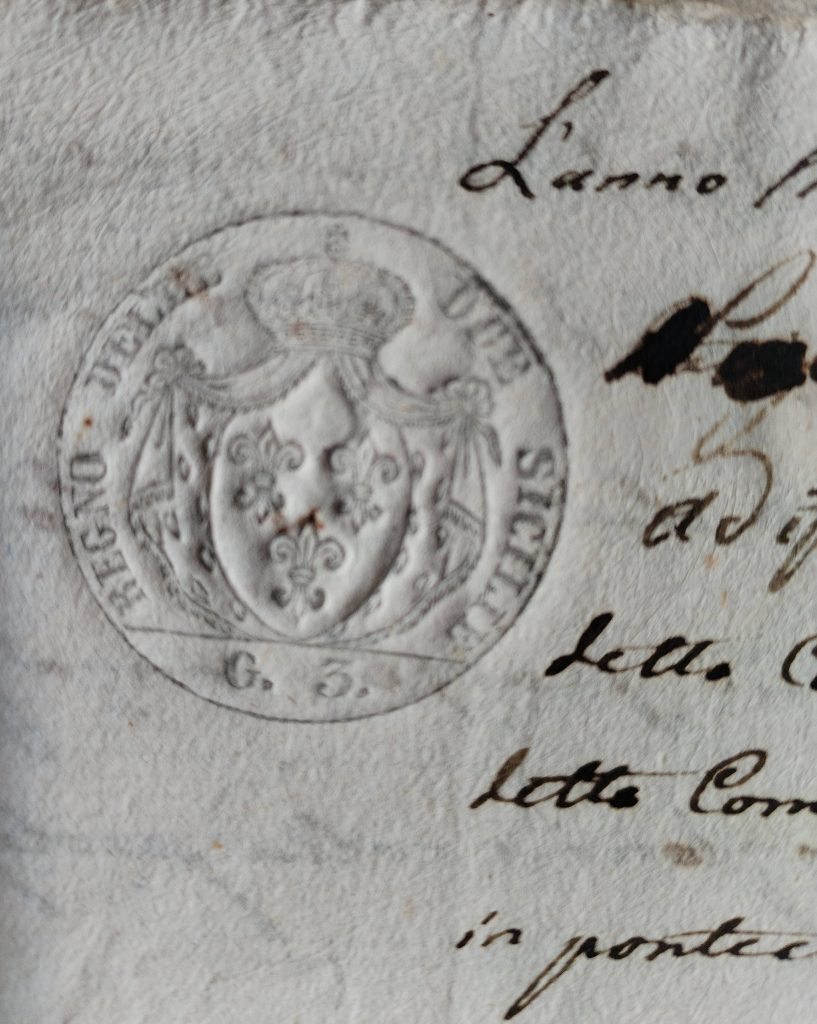 REGNO DELLE DUE SICILIE
G. 3.
L'anno
ad
detto
detto Com
in pontec